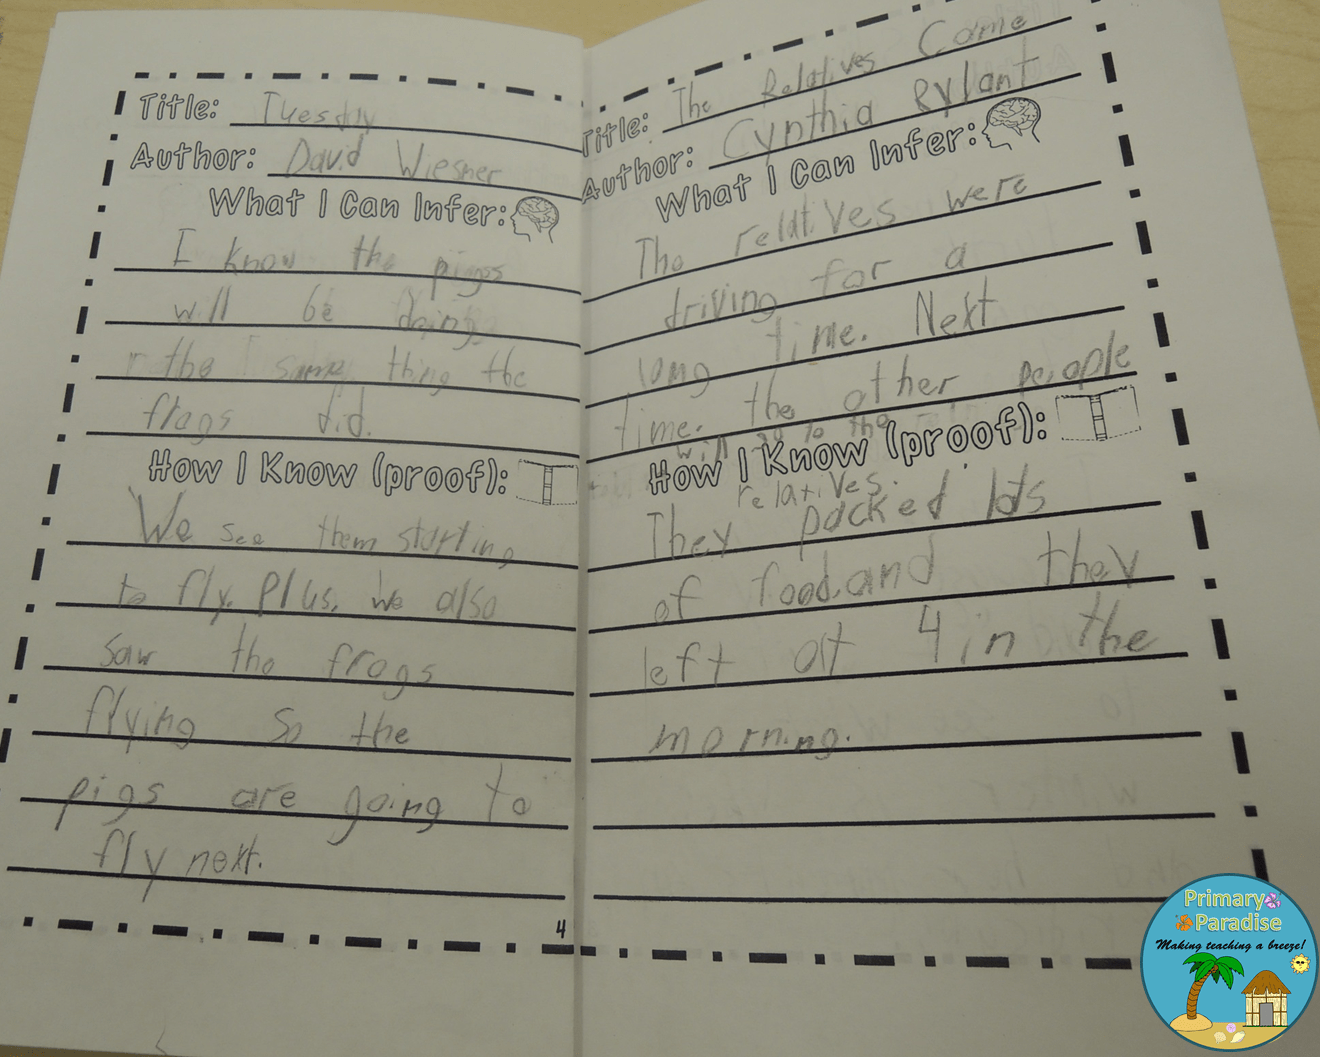 Title: Tuesday
Author: David Wiesner
What I Can Infer:
I know the piges
will be doing
the same thing the
frogs did.
How I Know (proof):
We see them starting
to fly. Plus, we also
saw the frogs
flying so the
pigs are going to
fly next.
4
Title: The Relatives Came
Author: Cynthia Rylant
What I Can Infer:
The relatives were
driving for a
long time. Next
time. the other people
will go to the
How I Know (proof):
relatives.
They packed lots
of food and they
left at 4 in the
morning.
Primary
Paradise
Making teaching a breeze!